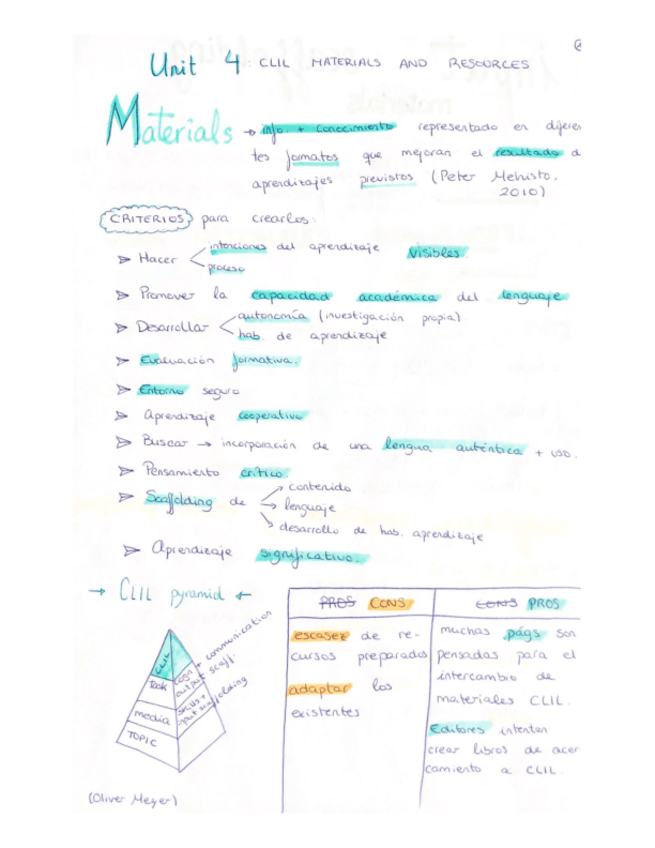 Unit 4. CLIL MATERIALS AND RESOURCES
Materials → info. + conocimiento representado en diferen
tes formatos que mejoran el resultado d
aprendizajes previstos (Peter Mehisto,
2010)
CRITERIOS para crearlos:
➤ Hacer < intenciones del aprendizaje visibles.
proceso
➤ Promover la capacidad académica del lenguaje
➤ Desarrollar < autonomía (investigación propia)
hab. de aprendizaje
➤ Evaluación formativa.
➤ Entorno seguro
➤ Aprendizaje cooperativo
➤ Buscar → incorporación de una lengua auténtica + uso.
➤ Pensamiento crítico.
➤ Scaffolding de → contenido
→ lenguaje
→ desarrollo de hab. aprendizaje
➤ Aprendizaje significativo.
→ CLIL pyramid ←
CLIL
Task
media
TOPIC
cogn + communication
output scaff.
skills +
input scaffolding
(Oliver Meyer)
PROS CONS
escasez de re-
cursos preparados
adaptar los
existentes
CONS PROS
muchas págs son
pensadas para el
intercambio de
materiales CLIL.
Editores intentan
crear libros de acer
camiento a CLIL.